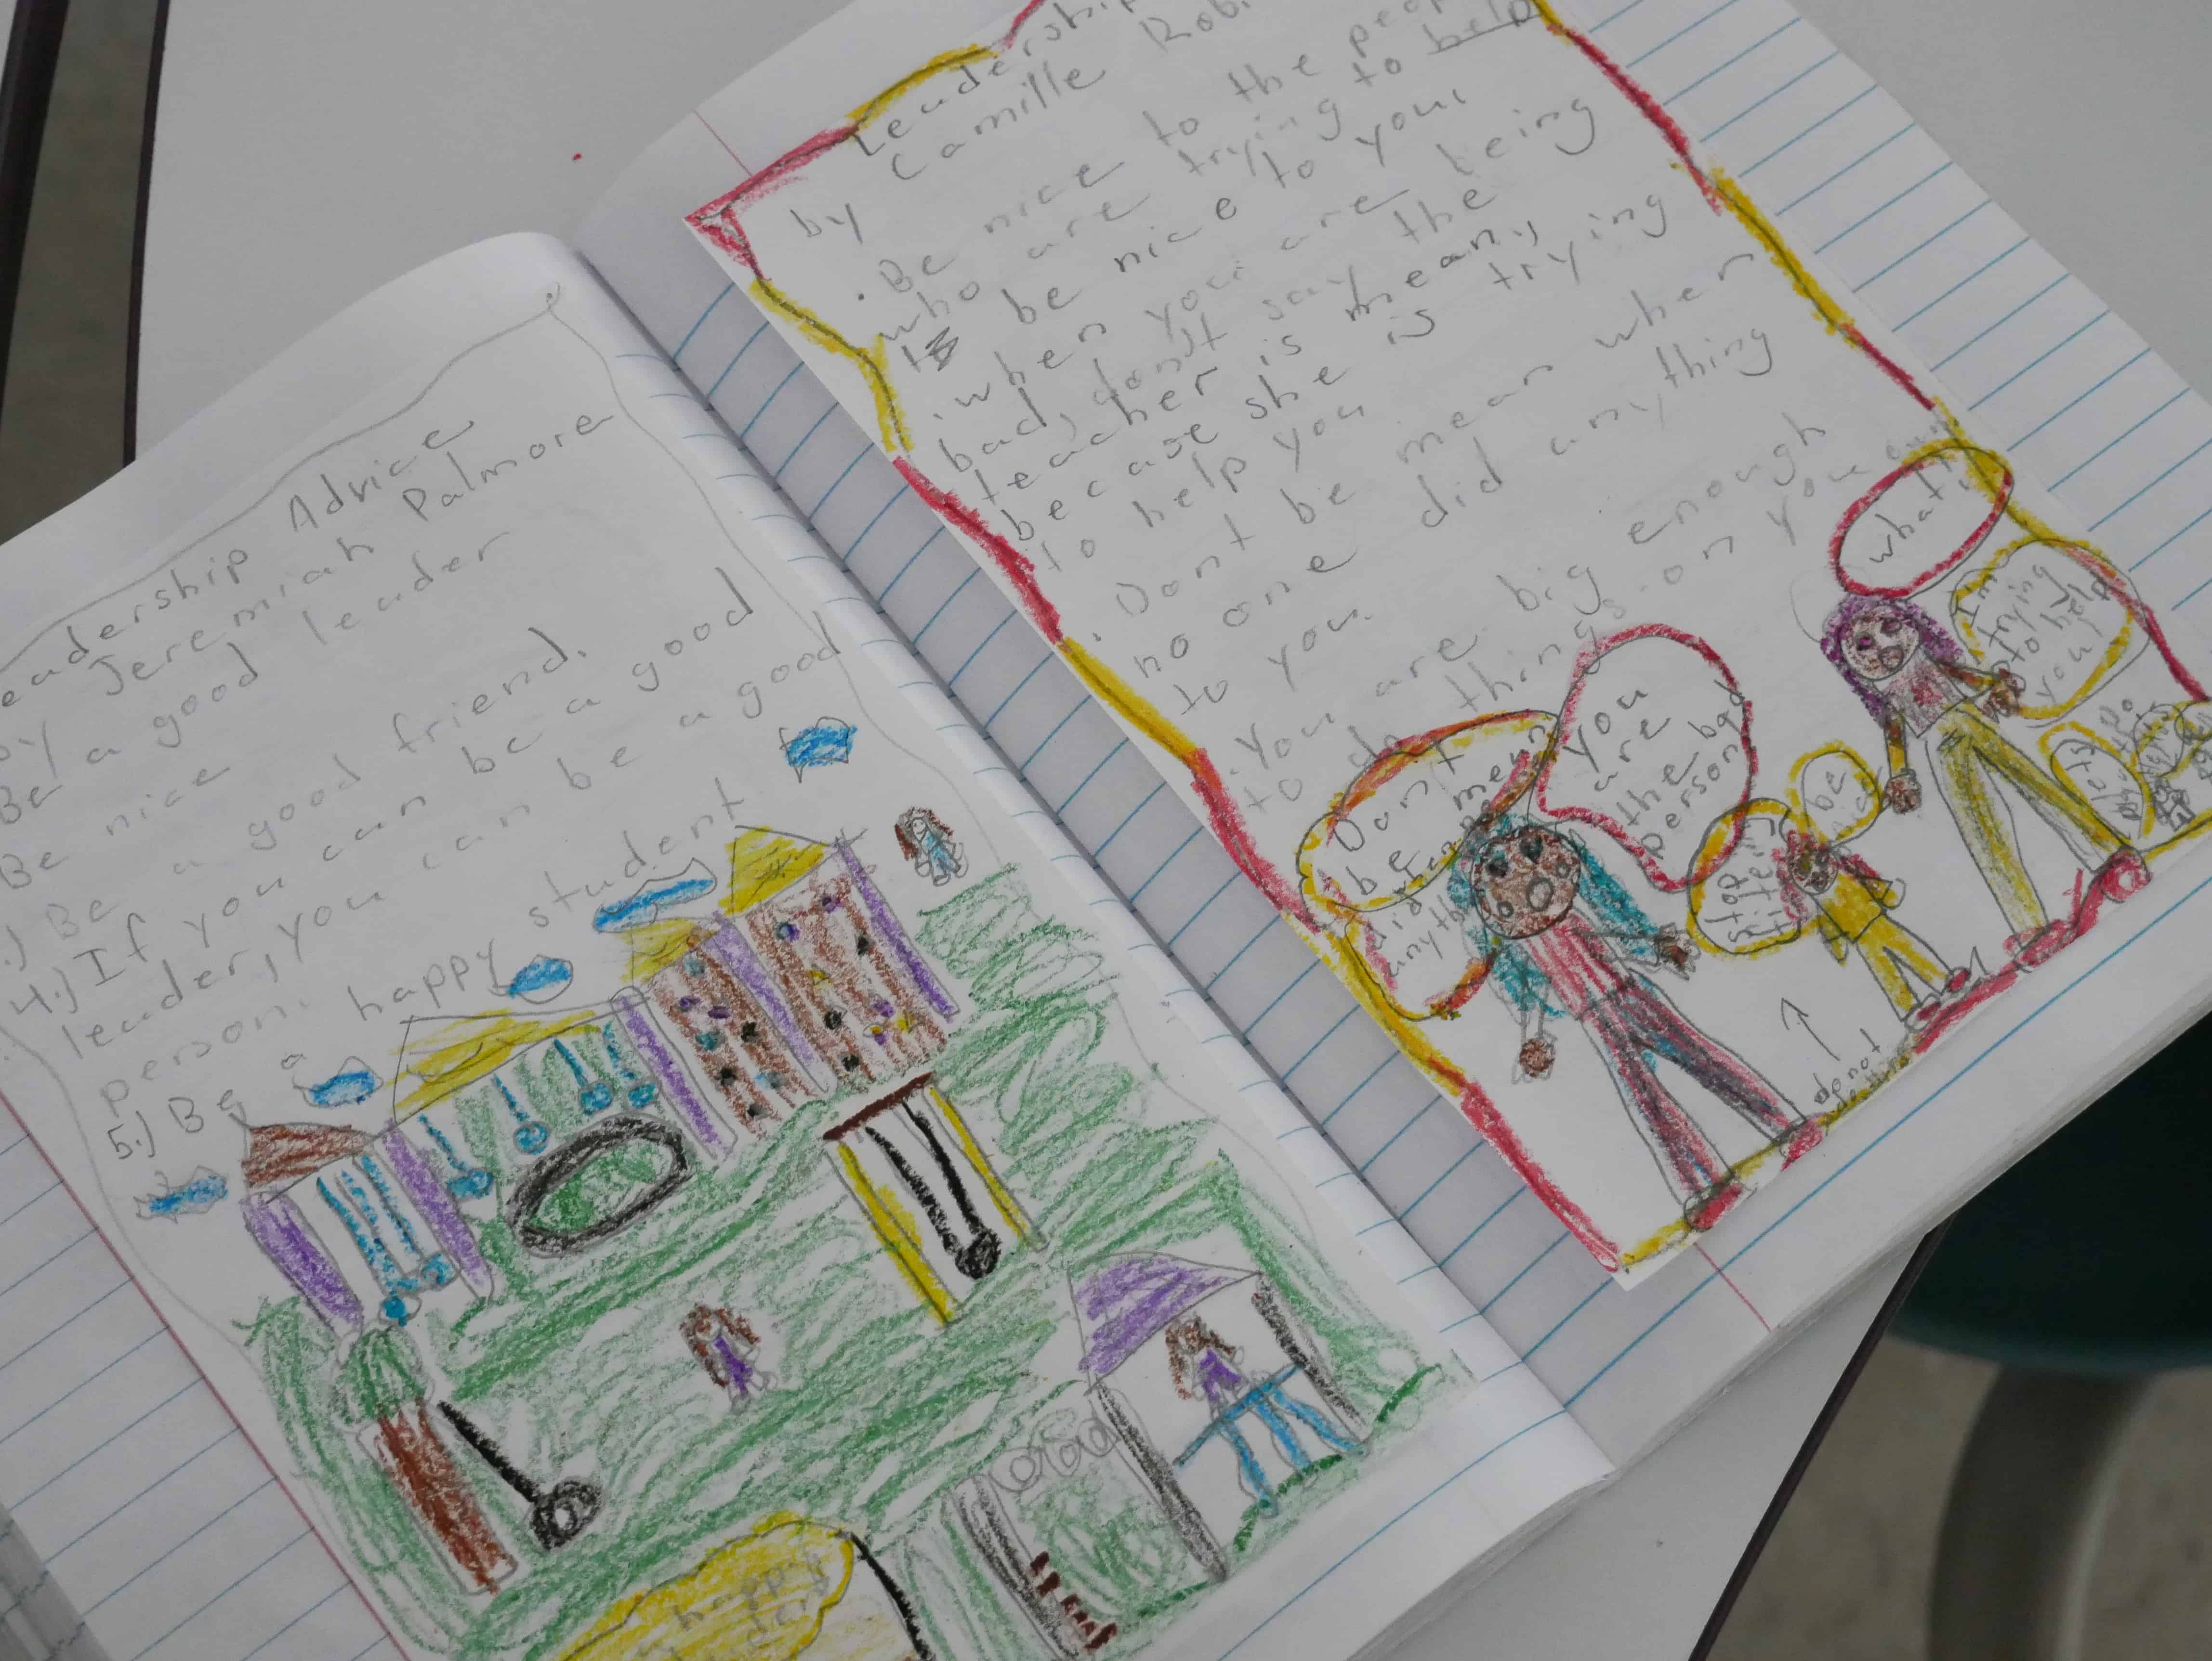 eadership Advice
by Jeremiah Palmore
Be a good leader
Be nice
.) Be a good friend.
4.) If you can be a good
leader, you can be a good
person.
5.) Be a happy student
happy
Leadership
by Camille Robi
. Be nice to the peop
who are trying to help
be nice to you.
. when you are being
bad, don't say the
teacher is mean,
because she is trying
to help you
. Dont be mean when
no one did anything
to you.
. You are big enough
to do things on you own
what!
Im trying
to help
you!
Dont
be mean
you
are
the bad
person
be
stop